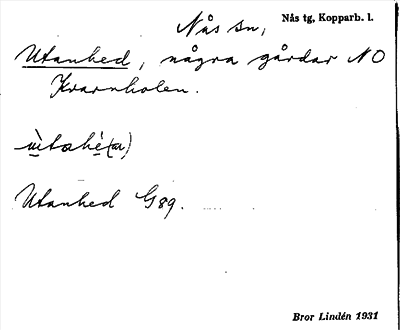 Nås sn, Nås tg, Kopparb. l.
Utanhed, några gårdar NO
Kvarnholen.
Utanhed G89.
Bror Lindén 1931